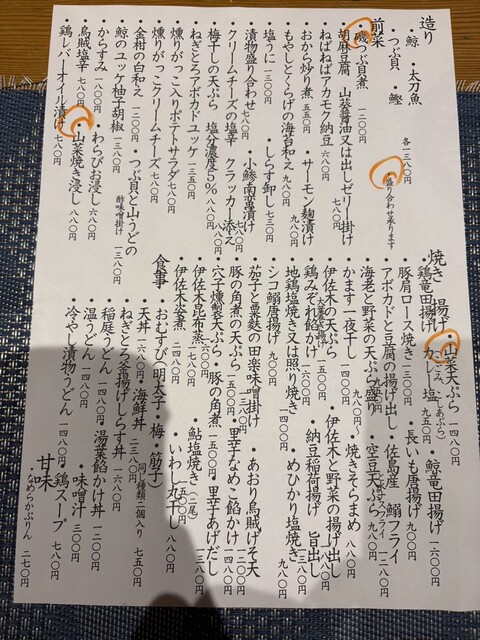 造り
・鯨 ・太刀魚
・つぶ貝 ・鰹
各一三八〇円
・盛り合わせ承ります
前菜
・磯つぶ貝煮 一二〇〇円
・胡麻豆腐 山葵醤油又は出しゼリー掛け 七八〇円
・ねばねばアカモク納豆 六八〇円
・おから炒り煮 五五〇円 ・サーモン麹漬け 九八〇円
・もやしときくらげの海苔和え 七八〇円
・塩うに 一三〇〇円 ・しらす卸し 七三〇円
・漬物盛り合わせ 七八〇円 ・小鯵南蛮漬け 九八〇円
・クリームチーズの塩辛 クラッカー添え 八八〇円
・梅干しの天ぷら 塩分濃度5% 七三〇円
・ねぎとろアボカドユッケ 一三五〇円
・燻りがっこ入りポテトサラダ 七八〇円
・燻りがっこクリームチーズ 七八〇円
・金柑の白和え 一二〇〇円
・鯨のユッケ柚子胡椒 一三八〇円 ・つぶ貝と山うどの酢味噌掛け 一三八〇円
・からすみ 一八〇〇円 ・わらびお浸し 六八〇円
・烏賊塩辛 七八〇円 ・山菜焼き浸し 八八〇円
・鶏レバーオイル漬け 七八〇円
焼き 揚げ
・山菜天ぷら 一四八〇円
・鶏竜田揚げ カレー塩 九五〇円 ・鯨竜田揚げ 一六〇〇円
・豚肩ロース焼き 一三〇〇円 ・長いも唐揚げ 九〇〇円
・アボカドと豆腐の揚げ出し ・佐島産 鰯フライ 一二八〇円
・海老と野菜の天ぷら盛り ・空豆天ぷら 九〇〇円
・かます一夜干し 九八〇円 ・焼きそらまめ 八八〇円
・伊佐木の天ぷら ・伊佐木と野菜の揚げ出し
・鶏みぞれ餡かけ 一六〇〇円 ・納豆稲荷揚げ 旨出し
・地鶏塩焼き又は照り焼き 一四〇〇円 ・めひかり塩焼き 九八〇円
・シコ鰯唐揚げ 九〇〇円
・茄子と粟麩の田楽味噌掛け ・あおり烏賊げそ天 一二〇〇円
・豚の角煮の天ぷら 一五〇〇円 ・里芋なめこ餡かけ 一四八〇円
・穴子燻製天ぷら ・豚の角煮 一五〇〇円 ・里芋あげだし 一三八〇円
・伊佐木昆布蒸し ・鮎塩焼き(二尾)
・伊佐木姿煮 二四八〇円 ・いわし丸干し 八八〇円
食事
・おむすび(明太子・梅・筋子)
同じ種類二個入り 七五〇円
・天丼 一六八〇円 ・海鮮丼 二三八〇円
・ねぎとろ釜揚げしらす丼 一六八〇円
・稲庭うどん 一四八〇円 ・湯葉餡かけ丼 一二〇〇円
・温うどん 一四八〇円 ・味噌汁 三〇〇円
・冷やし漬物うどん 一四八〇円 ・鶏スープ 七八〇円
甘味
・なめらかぷりん 二七〇円